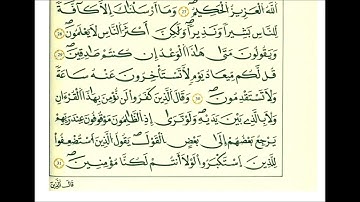 اللَّهُ الْعَزِيزُ الْحَكِيمُ ۝ وَمَا أَرْسَلْنَاكَ إِلَّا كَافَّةً
لِّلنَّاسِ بَشِيرًا وَنَذِيرًا وَلَٰكِنَّ أَكْثَرَ النَّاسِ لَا يَعْلَمُونَ ۝
وَيَقُولُونَ مَتَىٰ هَٰذَا الْوَعْدُ إِن كُنتُمْ صَادِقِينَ ۝
قُل لَّكُم مِّيعَادُ يَوْمٍ لَّا تَسْتَأْخِرُونَ عَنْهُ سَاعَةً
وَلَا تَسْتَقْدِمُونَ ۝ وَقَالَ الَّذِينَ كَفَرُوا لَن نُّؤْمِنَ بِهَٰذَا الْقُرْءَانِ
وَلَا بِالَّذِي بَيْنَ يَدَيْهِ وَلَوْ تَرَىٰ إِذِ الظَّالِمُونَ مَوْقُوفُونَ عِندَ رَبِّهِمْ
يَرْجِعُ بَعْضُهُمْ إِلَىٰ بَعْضٍ الْقَوْلَ يَقُولُ الَّذِينَ اسْتُضْعِفُوا
لِلَّذِينَ اسْتَكْبَرُوا لَوْلَا أَنتُمْ لَكُنَّا مُؤْمِنِينَ ۝
قَالَ الَّذِينَ